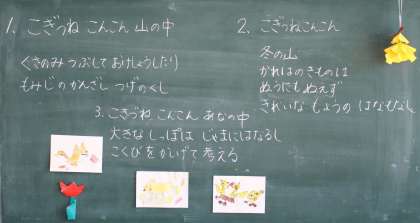 1. こぎつね こんこん 山の中
くさのみ つぶして おけしょうしたり
もみじの かんざし つげのくし
2. こぎつねこんこん
冬の山
かれはのきものは
ぬうにもぬえず
きれいな もようの はなもなし
3. こぎつね こんこん あなの中
大きな しっぽは じゃまにはなるし
こくびをかしげて考える